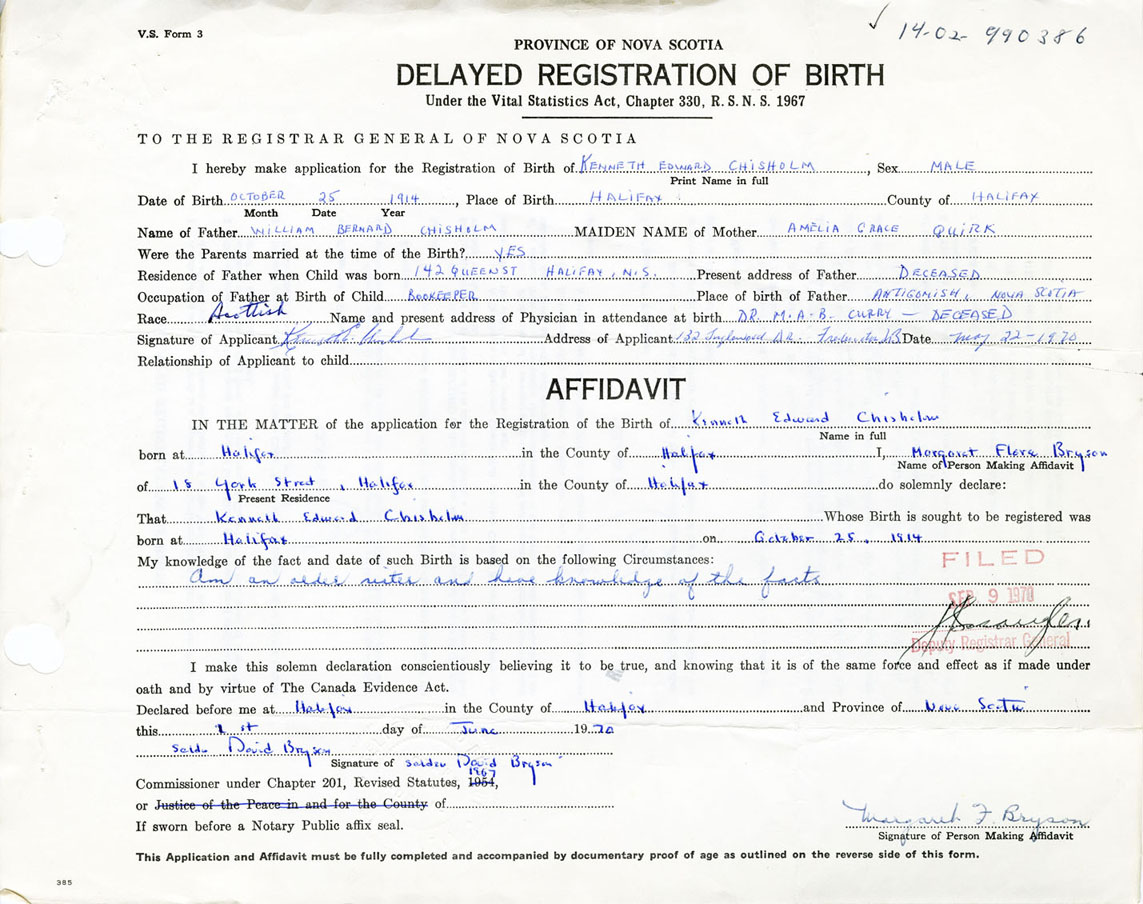 V.S. Form 3
14-02-990386
PROVINCE OF NOVA SCOTIA
DELAYED REGISTRATION OF BIRTH
Under the Vital Statistics Act, Chapter 330, R. S. N. S. 1967
TO THE REGISTRAR GENERAL OF NOVA SCOTIA
I hereby make application for the Registration of Birth of KENNETH EDWARD CHISHOLM, Sex MALE
Print Name in full
Date of Birth OCTOBER 25 1914, Place of Birth HALIFAX County of HALIFAX
Month Date Year
Name of Father WILLIAM BERNARD CHISHOLM MAIDEN NAME of Mother AMELIA GRACE QUIRK
Were the Parents married at the time of the Birth? YES
Residence of Father when Child was born 142 QUEEN ST HALIFAX, N.S. Present address of Father DECEASED
Occupation of Father at Birth of Child BOOKEEPER Place of birth of Father ANTIGONISH, NOVA SCOTIA
Race Scottish Name and present address of Physician in attendance at birth DR. M.A.B. CURRY — DECEASED
Signature of Applicant Address of Applicant 132 Inglewood DR. Fredericton NB Date May 22-1970
Relationship of Applicant to child
AFFIDAVIT
IN THE MATTER of the application for the Registration of the Birth of Kenneth Edward Chisholm
Name in full
born at Halifax in the County of Halifax I, Margaret Flora Bryson
Name of Person Making Affidavit
of 18 York Street, Halifax in the County of Halifax do solemnly declare:
Present Residence
That Kenneth Edward Chisholm Whose Birth is sought to be registered was
born at Halifax on October 25, 1914
My knowledge of the fact and date of such Birth is based on the following Circumstances:
Am an older sister and have knowledge of the facts
FILED
SEP 9 1970
Deputy Registrar General
I make this solemn declaration conscientiously believing it to be true, and knowing that it is of the same force and effect as if made under
oath and by virtue of The Canada Evidence Act.
Declared before me at Halifax in the County of Halifax and Province of Nova Scotia
this 1st day of June 1970
David Bryson
Signature of David Bryson
1967
Commissioner under Chapter 201, Revised Statutes, 1954,
or Justice of the Peace in and for the County of
If sworn before a Notary Public affix seal.
Margaret F. Bryson
Signature of Person Making Affidavit
This Application and Affidavit must be fully completed and accompanied by documentary proof of age as outlined on the reverse side of this form.
385